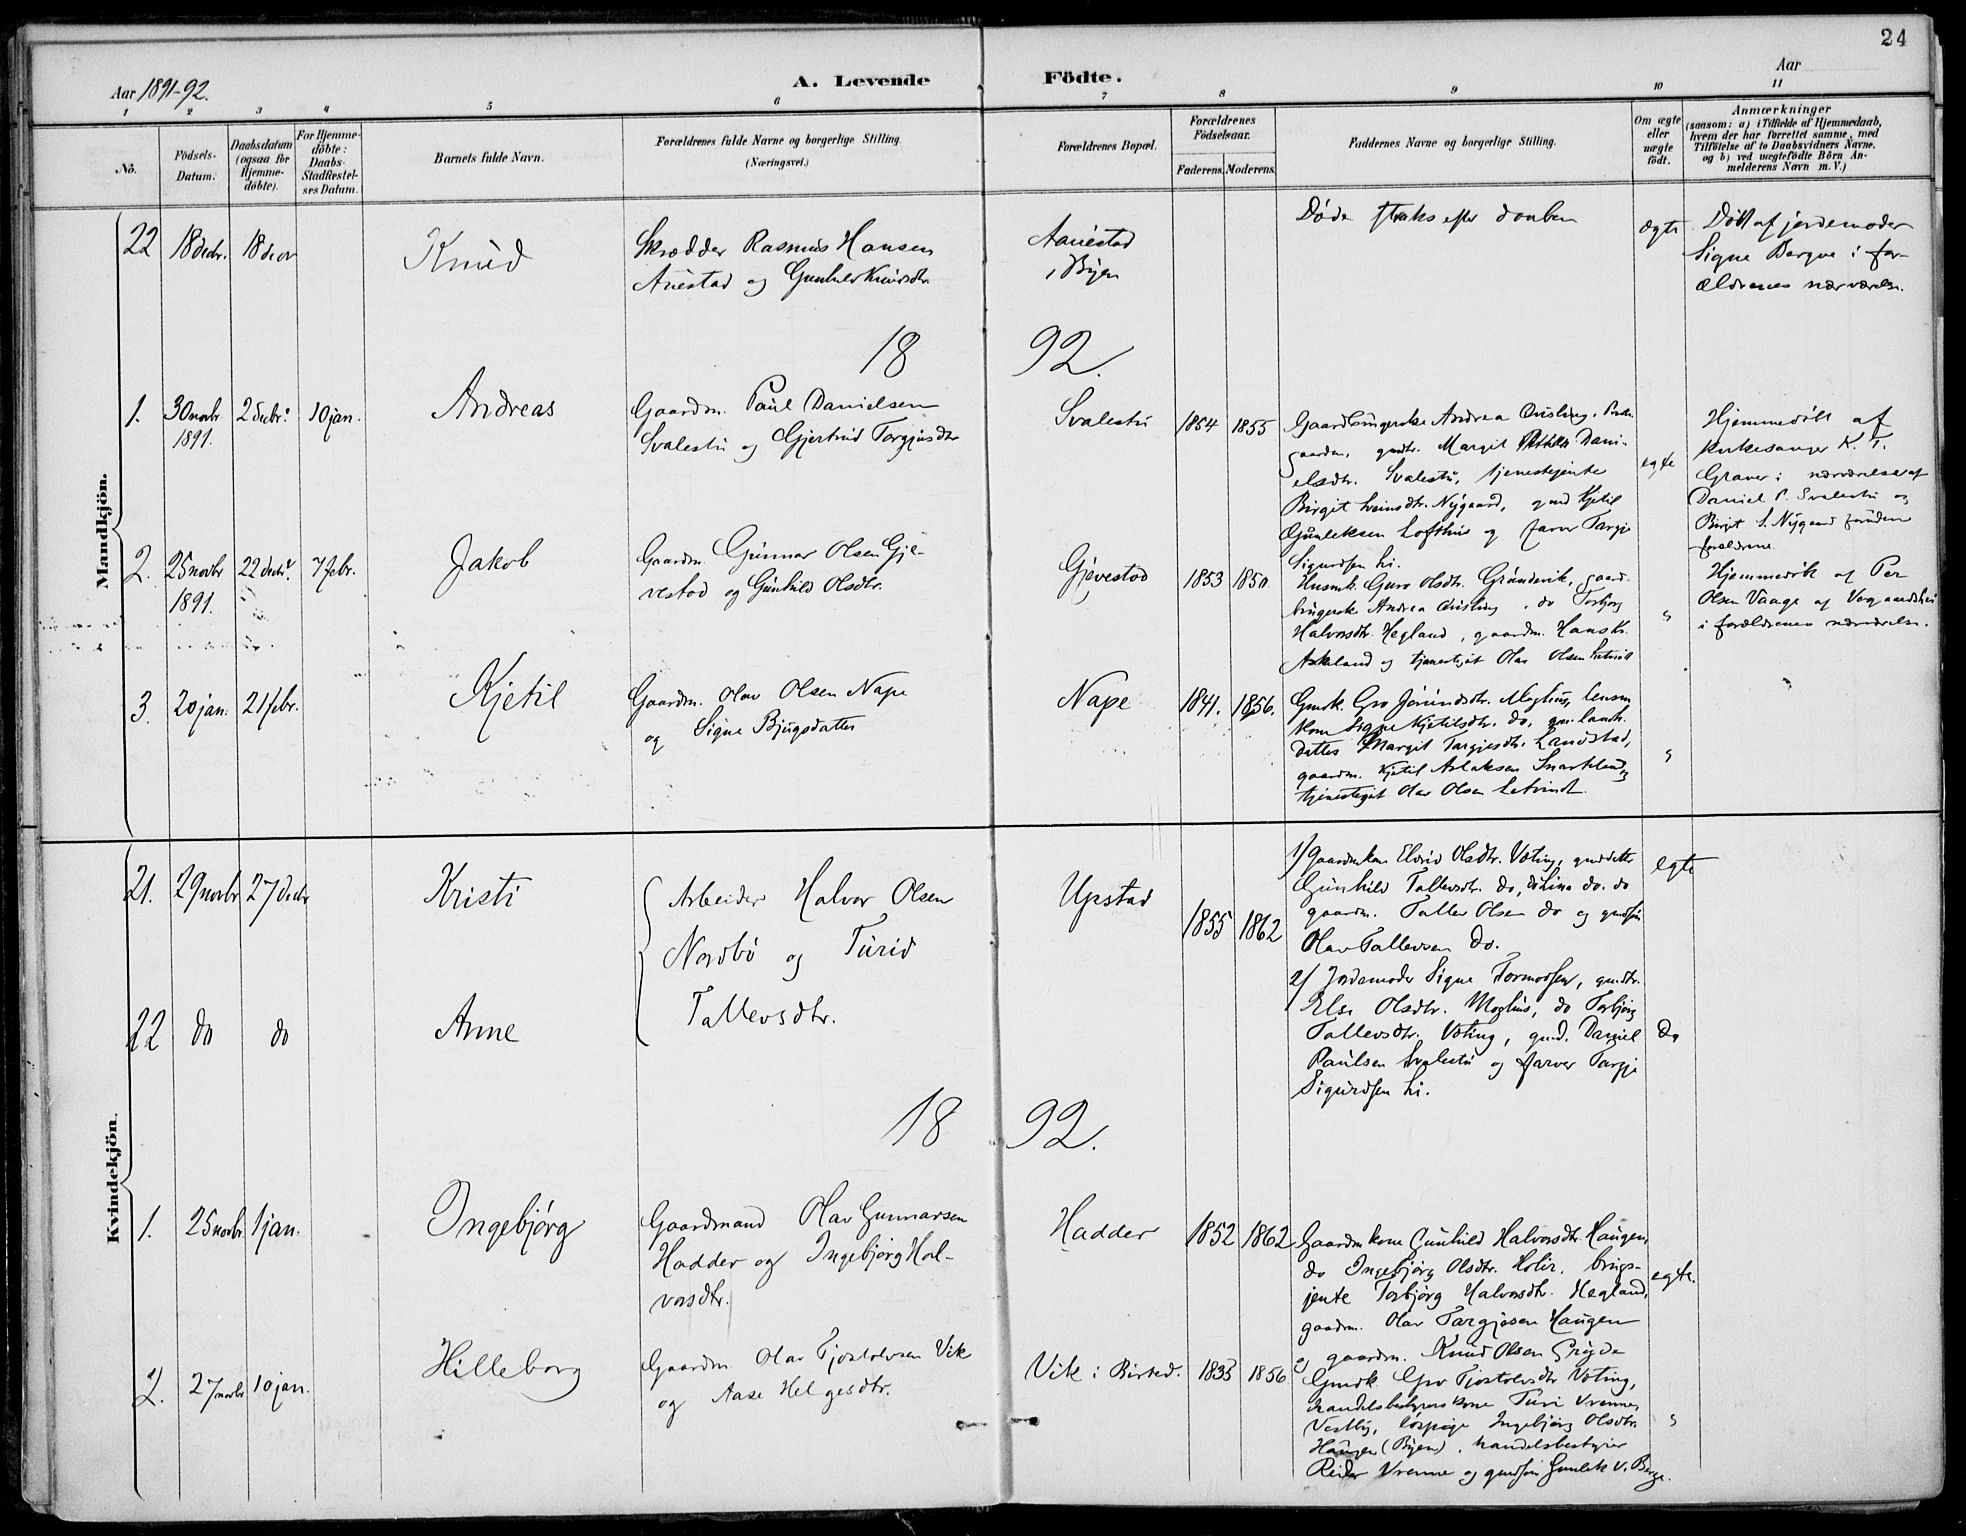 24
Aar 1891-92.
A. Levende Födte.
Aar
1 2 3 4 5 6 7 8 9 10 11
No.
Födsels-Datum.
Daabsdatum (ogsaa for Hjemme-døbte).
For Hjemme-döbte: Daabs-Stadfæstel-ses Datum.
Barnets fulde Navn.
Forældrenes fulde Navne og borgerlige Stilling
(Næringsvei.)
Forældrenes Bopæl.
Forældrenes Födselsaar.
Faderens. Moderens.
Faddernes Navne og borgerlige Stilling.
Om ægte eller uægte födt.
Anmærkninger
(saasom: a) i Tilfælde af Hjemmedaab, hvem der har forrettet samme, med Tilföielse af to Daabsvidners Navne, og b) ved uægtefödte Börn An-melderens Navn m. V.)
Mandkjön.
22 18 decbr. 18 decbr Knud
Skrædder Rasmus Hansen
Auestad og Gunhild Knudsdtr.
Aauestad
i Byen
Døde straks efter daaben
ægte
Døbt af jordemoder
Signe Bergve i for-
ældrenes nærværelse.
18 92.
1. 30 novbr 1891. 2 decbr. 10 jan. Andreas
Gaardm. Paul Danielsen
Svalestu og Gjertrud Torgjusdtr
Svalestu 1854 1855
Gaardbrugerske Andrea Qvisling,
gaarden, gmdtr. Margit Dani-
elsdtr. Svalestu, tjenestejente
Birgit Sveinsdtr. Nygaard, gmd Kjetil
Gunleksen Lofthus og farver Targje
Sigurdsen Li.
egte
Hjemmedøbt af
kirkesanger K. T.
Graver i nærværelse af
Daniel P. Svalestu og
Birgit S. Nygaard foruden
forældrene.
2. 25 novbr 1891. 22 decbr. 7 febr. Jakob
Gaardm. Gunnar Olsen Gje-
vestad og Gunhild Olsdtr.
Gjevestad 1853 1850.
Husmk. Guro Olsdtr. Grånderik, gaard-
brugerske Andrea Qvisling, do Torbjørg
Halvorsdtr. Hegland, gaardm. Hans Kr.
Askeland og tjenestegut Olav Olsen
"
Hjemmedøbt af Per
Olsen Vaage af
i forældrenes nærværelse.
3. 20 jan. 21 febr. Kjetil
Gaardm. Olav Olsen Nape
og Signe Bjugsdatter
Nape 1841. 1856.
Gmdk. Gro Jørundsdtr. Moghus, lensm
kone Signe Kjetilsdtr. do, gm. landh.
datter Margit Targjesdtr. Landstad,
gaardm. Kjetil Aslaksen
tjenestegut Olav Olsen
"
Kvindekjön.
21. 29 novbr 27 decbr Kristi
Arbeider Halvor Olsen
Nordbö og Turid
Tallevsdtr.
Upstad
1855 1862
1/ Gaardmkone Eldrid Olsdtr. Vøting, gmddatter
Gunhild Tallevsdtr. do, do Lina do. do
gaardm. Tallev Olsen do og gmdsøn
Olav Tallevsen do.
egte
22 do do Anne
2/ Jordemoder Signe Tormodsen, gmdtr.
Else Olsdtr. Moghus, do Torbjørg
Tallevsdtr. Vøting, gmd. Daniel
Paulsen Svalestu og farver Targje
Sigurdsen Li.
do
18 92.
1. 25 novbr 1 jan. Ingebjörg
Gaardmand Olav Gunnarsen
Hadder og Ingebjørg Hal-
vorsdtr.
Hadder 1852 1862
Gaardmkone Gunhild Halvorsdtr. Haugen,
do Ingebjørg Olsdtr. brugs-
jente Torbjørg Halvorsdtr. Hegland,
gaardm. Olav Targjesen Haugen
og gaardm. Knud Olsen
egte.
2. 27 novbr 10 jan. Hilleborg
Gaardm. Olav Tjostolvsen Vik
og Aase Helgesdtr.
Vik i Birted. 1833 1856
Gmdk. Gro Tjostolvsdtr Vøting,
handelsbestyrerskone Turi Vrenne,
Vestby, Ingebjørg Olsdtr.
Haugen (Byen), handelsbestyrer
Reidar Vrenne og gmdsøn Gunlek V. Berge.
"